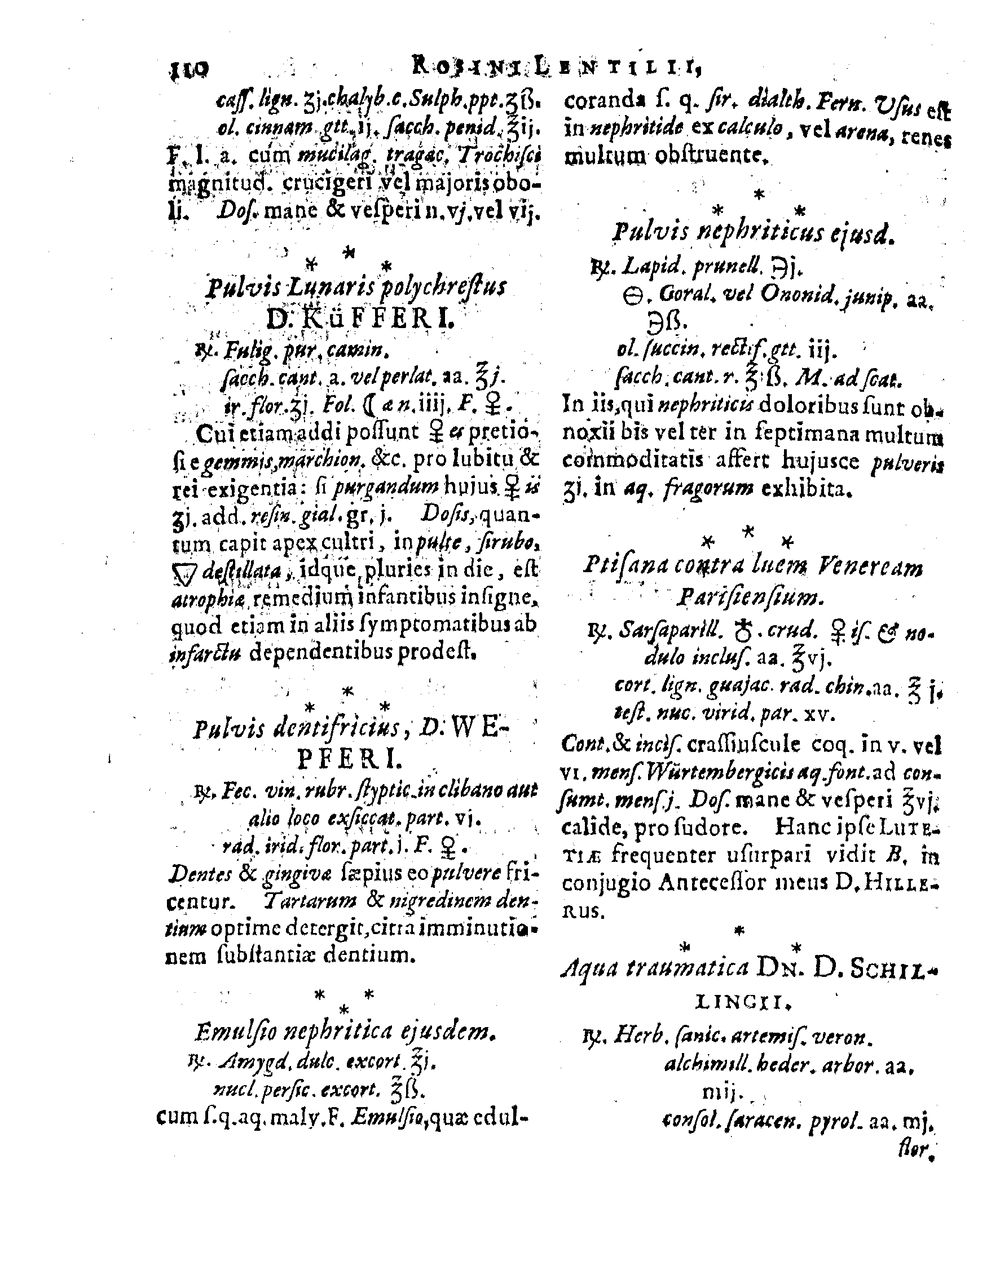 110 ROSINI LENTILII,
caſſ. lign. ʒj. chalyb. c. Sulph. ppt. ʒß.
ol. cinnam. gtt. ij. ſacch. penid. ℥ij.
F. l. a. cum mucilag. tragac. Trochiſci
magnitud. crucigeri vel majoris obo-
li. Doſ. mane & veſperi n. vj. vel vij.
* * *
Pulvis Lunaris polychreſtus
D. KüFFERI.
℞. Fulig. pur. camin.
ſacch. cant. a. vel perlat. aa. ℥j.
ir. flor. ʒj. Fol. ☾æ n. iiij. F. ♀.
Cui etiam addi poſſunt ♀es pretio-
ſi e gemmis, marchion. &c. pro lubitu &
rei exigentia: ſi purgandum hujus ♀is
ʒj. add. reſin. gial. gr. j. Doſis, quan-
tum capit apex cultri, in pulte, ſirubo,
▽ deſtillata, idque pluries in die, eſt
atrophiæ remedium infantibus inſigne,
quod etiam in aliis ſymptomatibus ab
infarctu dependentibus prodeſt.
* * *
Pulvis dentifricius, D. WE-
PFERI.
℞. Fec. vin. rubr. ſtyptic. in clibano aut
alio loco exſiccat. part. vj.
rad. irid. flor. part. j. F. ♀.
Dentes & gingivæ ſæpius eo pulvere fri-
centur. Tartarum & nigredinem den-
tium optime detergit, citra imminutio-
nem ſubſtantiæ dentium.
* * *
Emulſio nephritica ejusdem.
℞. Amygd. dulc. excort. ℥j.
nucl. perſic. excort. ℥ß.
cum ſ. q. aq. malv. F. Emulſio, quæ edul-
coranda ſ. q. ſir. dialth. Fern. Uſus eſt
in nephritide ex calculo, vel arena, renes
multum obſtruente.
* * *
Pulvis nephriticus ejusd.
℞. Lapid. prunell. ℈j.
⊖. Goral. vel Ononid. junip. aa.
℈ß.
ol. ſuccin. rectif. gtt. iij.
ſacch. cant. r. ℥ß. M. ad ſcat.
In iis, qui nephriticis doloribus ſunt ob-
noxii bis vel ter in ſeptimana multum
commoditatis affert hujusce pulveris
ʒj. in aq. fragorum exhibita.
* * *
Ptiſana contra luem Veneream
Pariſienſium.
℞. Sarſaparill. ♁. crud. ♀iſ. & no-
dulo incluſ. aa. ℥vj.
cort. lign. guajac. rad. chin. aa. ℥j.
teſt. nuc. virid. par. xv.
Cont. & inciſ. craſſiuſcule coq. in v. vel
VI. menſ. Würtembergicis aq. font. ad con-
ſumt. menſ. j. Doſ. mane & veſperi ℥vj.
calide, pro ſudore. Hanc ipſe LUTE-
TIÆ frequenter uſurpari vidit B. in
conjugio Anteceſſor meus D. HILLE-
RUS.
* * *
Aqua traumatica DN. D. SCHIL-
LINGII.
℞. Herb. ſanic. artemiſ. veron.
alchimill. heder. arbor. aa.
mij.
conſol. ſaracen. pyrol. aa. mj.
flor.